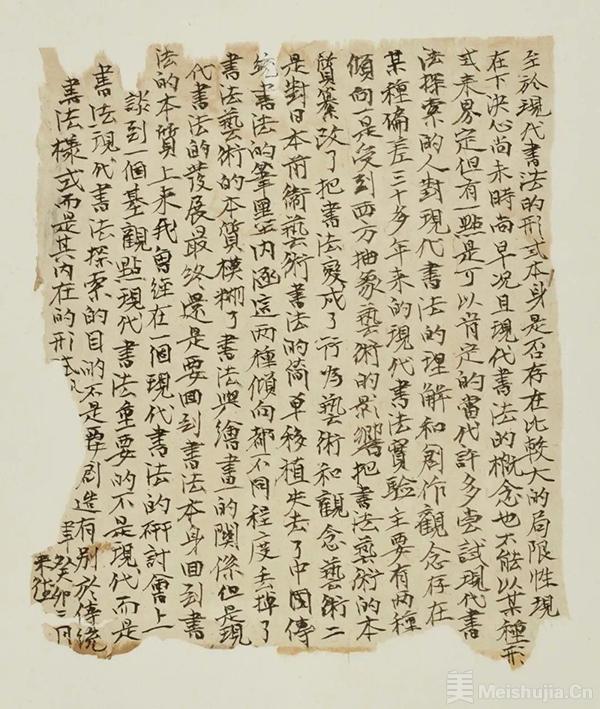 至於現代書法的形式本身是否存在比較大的局限性現
在下決心尚未時尚早況且現代書法的概念也不能以某種形
式来界定但有一點是可以肯定的當代許多尝試現代書
法探索的人對現代書法的理解和創作觀念存在
某種偏差三十多年来的現代書法實驗主要有两種
傾向一是受到西方抽象藝術的影響把書法藝術的本
質篡改了把書法變成了行为藝術和觀念藝術二
是對日本前衛藝術書法的簡單移植失去了中國傳
統書法的筆墨内涵這两種傾向都不同程度丢掉了
書法藝術的本質模糊了書法與繪畫的關係但是現
代書法的發展最終還是要回到書法本身回到書
法的本質上来我曾經在一個現代書法的研討會上
談到一個基觀點現代書法重要的不是現代而是
書法現代書法探索的目的不是要創造有别於傳統
書法樣式而是其内在的形式
癸卯二月
美 Meishujia.Cn